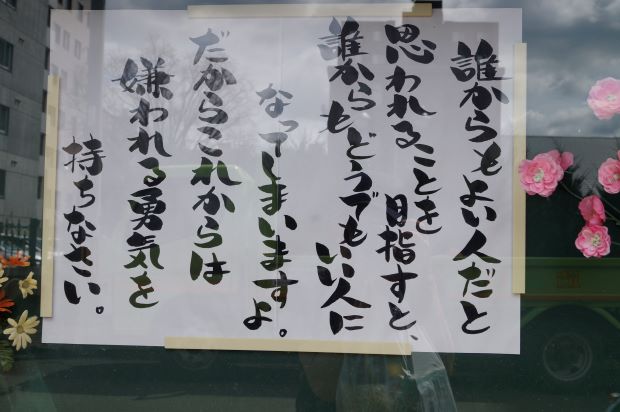 誰からもよい人だと
思われることを 目指すと、
誰からもどうでもいい人に
なってしまいますよ。
だからこれからは
嫌われる勇気を
持ちなさい。